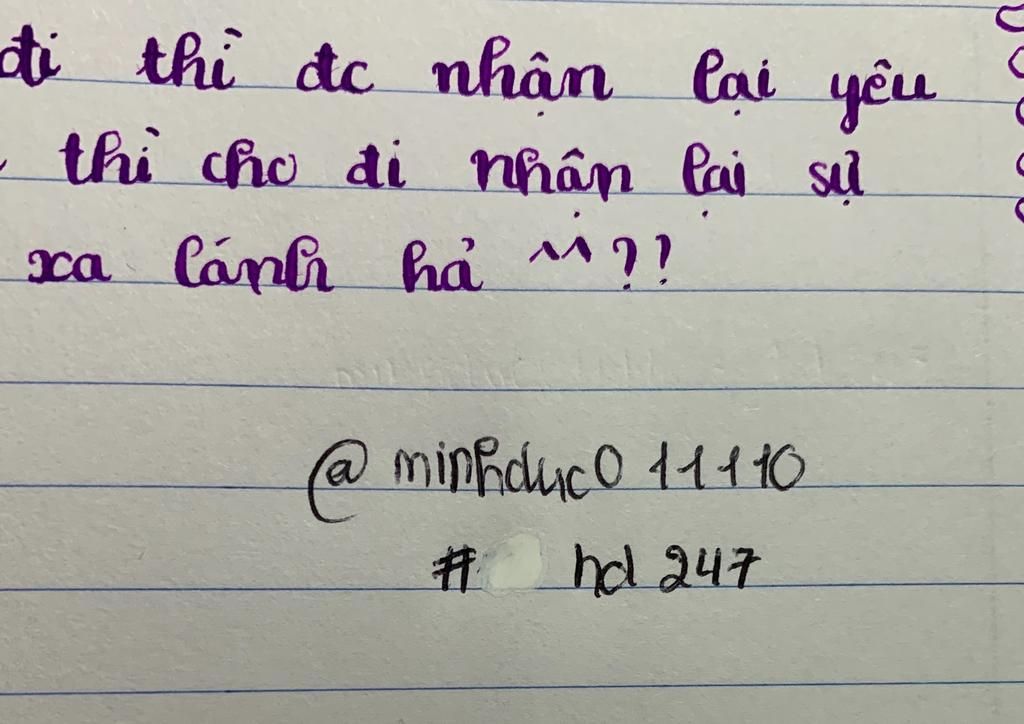 đi thì đc nhận lại yêu
thì cho đi nhận lại sự
xa lánh hả ^^??
@minhduc011110
# hd 247